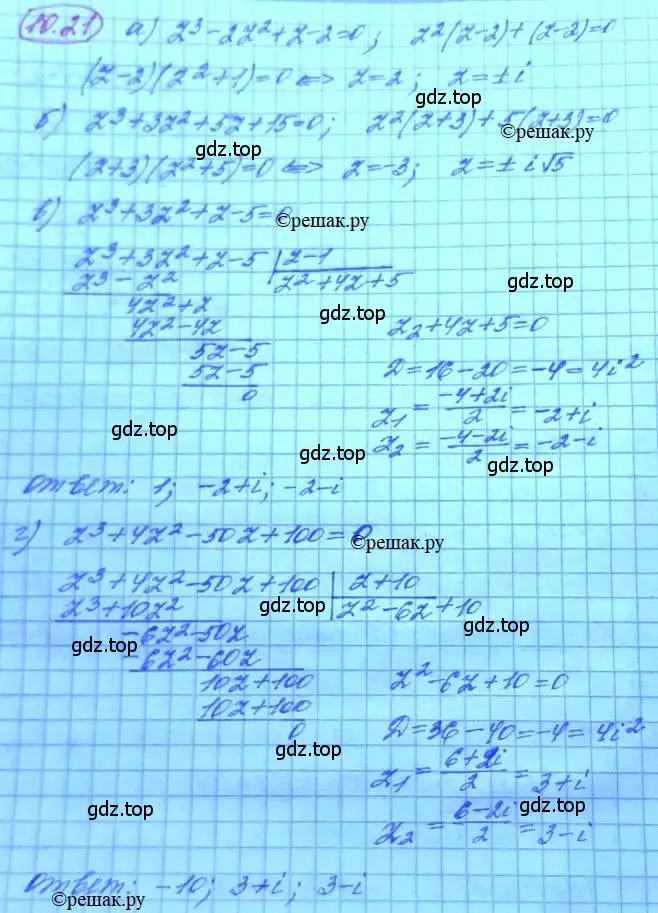 10.21 а) z³-2z²+z-2=0; z²(z-2)+(z-2)=0
(z-2)(z²+1)=0 <=> z=2; z=±i
gdz.top
б) z³+3z²+5z+15=0; z²(z+3)+5(z+3)=0
©решак.ру
gdz.top
(z+3)(z²+5)=0 <=> z=-3; z=±i√5
в) z³+3z²+z-5=0
©решак.ру
z³+3z²+z-5 | z-1
z³-z² z²+4z+5
gdz.top
4z²+z
gdz.top
4z²-4z z₂+4z+5=0
5z-5
5z-5 D=16-20=-4=4i²
0
z₁ = (-4+2i)/2 = -2+i
gdz.top
z₂ = (-4-2i)/2 = -2-i
gdz.top
ответ: 1; -2+i; -2-i
г) z³+4z²-50z+100=0
©решак.ру
z³+4z²-50z+100 | z+10
z³+10z² z²-6z+10
gdz.top
-6z²-50z
gdz.top
gdz.top
-6z²-60z
10z+100 z²-6z+10=0
10z+100
0 D=36-40=-4=4i²
gdz.top
z₁ = (6+2i)/2 = 3+i
gdz.top
gdz.top
z₂ = (6-2i)/2 = 3-i
ответ: -10; 3+i; 3-i
©решак.ру